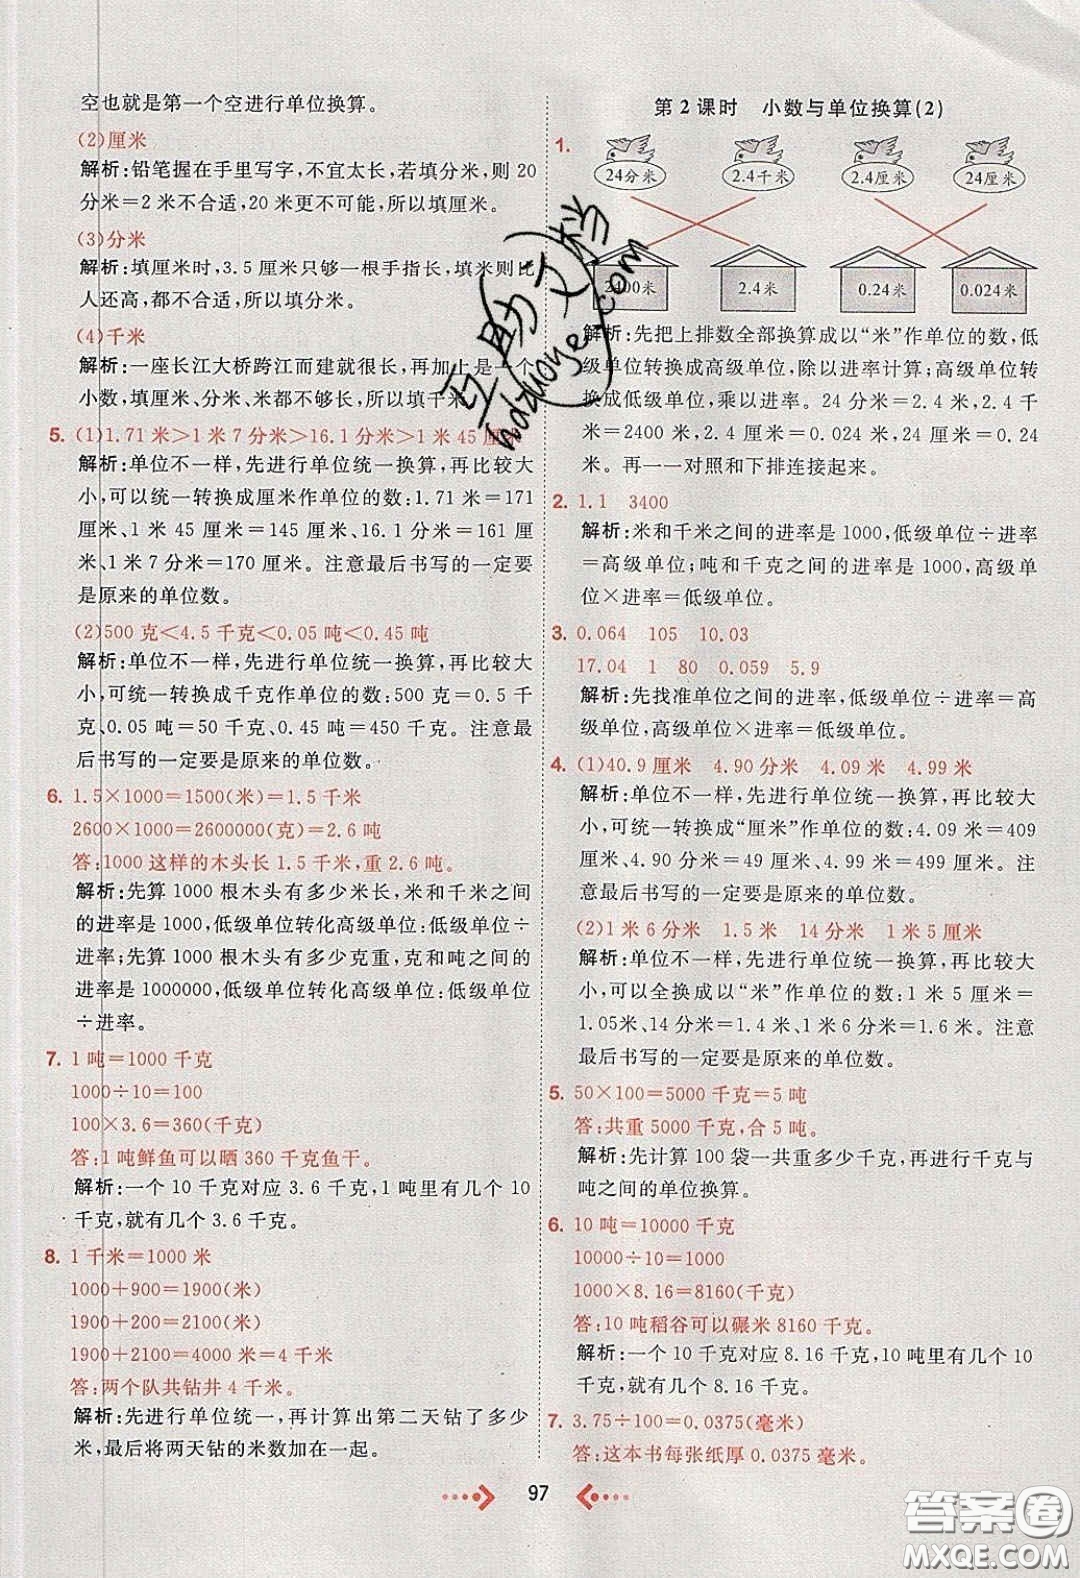 空也就是第一个空进行单位换算。
(2)厘米
解析:铅笔握在手里写字,不宜太长,若填分米,则 20
分米=2 米不合适,20 米更不可能,所以填厘米。
(3)分米
解析:填厘米时,3.5 厘米只够一根手指长,填米则比
人还高,所以填分米。
(4)千米
解析:一座长江大桥跨江而建就很长,再加上是一个
小数,填厘米、分米、米都不够长,所以填千米
5. (1)1.71 米>1 米 7 分米>16.1 分米>1 米 45 厘米
解析:单位不一样,先进行单位统一换算,再比较大
小,可以统一转换成厘米作单位的数:1.71 米=171
厘米、1 米 45 厘米=145 厘米、16.1 分米=161 厘
米、1 米 7 分米=170 厘米。注意最后书写的一定要
是原来的单位数。
(2)500 克<4.5 千克<0.05 吨<0.45 吨
解析:单位不一样,先进行单位统一换算,再比较大
小,可统一转换成千克作单位的数:500 克=0.5 千
克、0.05 吨=50 千克、0.45 吨=450 千克。注意最
后书写的一定要是原来的单位数。
6. 1.5×1000=1500(米)=1.5 千米
2600×1000=2600000(克)=2.6 吨
答:1000 这样的木头长 1.5 千米,重 2.6 吨。
解析:先算 1000 根木头有多少米长,米和千米之间
的进率是 1000,低级单位转化高级单位:低级单位÷
进率;先算 1000 根木头有多少克重,克和吨之间的
进率是 1000000,低级单位转化高级单位:低级单位
÷进率。
7. 1 吨=1000 千克
1000÷10=100
100×3.6=360(千克)
答:1 吨鲜鱼可以晒 360 千克鱼干。
解析:一个 10 千克对应 3.6 千克,1 吨里有几个 10
千克,就有几个 3.6 千克。
8. 1 千米=1000 米
1000+900=1900(米)
1900+200=2100(米)
1900+2100=4000 米=4 千米
答:两个队共钻井 4 千米。
解析:先进行单位统一,再计算出第二天钻了多少
米,最后将两天钻的米数加在一起。
第 2 课时 小数与单位换算(2)
1.
24分米 2.4千米 2.4厘米 24厘米
2400米 2.4米 0.24米 0.024米
解析:先把上排数全部换算成以“米”作单位的数,低
级单位转换成高级单位,除以进率计算;高级单位转
换成低级单位,乘以进率。24 分米=2.4 米,2.4 千
米=2400 米,2.4 厘米=0.024 米,24 厘米=0.24
米。再一一对照和下排连接起来。
2. 1.1 3400
解析:米和千米之间的进率是 1000,低级单位÷进率
=高级单位;吨和千克之间的进率是 1000,高级单
位×进率=低级单位。
3. 0.064 105 10.03
17.04 1 80 0.059 5.9
解析:先找准单位之间的进率,低级单位÷进率=高
级单位,高级单位×进率=低级单位。
4. (1)40.9 厘米 4.90 分米 4.09 米 4.99 米
解析:单位不一样,先进行单位统一换算,再比较大
小,可统一转换成“厘米”作单位的数:4.09 米=409
厘米、4.90 分米=49 厘米、4.99 米=499 厘米。注
意最后书写的一定要是原来的单位数。
(2)1 米 6 分米 1.5 米 14 分米 1 米 5 厘米
解析:单位不一样,先进行单位统一换算,再比较大
小,可以全换成以“米”作单位的数:1 米 5 厘米=
1.05米、14 分米=1.4 米、1 米 6 分米=1.6 米。注意
最后书写的一定要是原来的单位数。
5. 50×100=5000 千克=5 吨
答:共重 5000 千克,合 5 吨。
解析:先计算 100 袋一共重多少千克,再进行千克与
吨之间的单位换算。
6. 10 吨=10000 千克
10000÷10=1000
1000×8.16=8160(千克)
答:10 吨稻谷可以碾米 8160 千克。
解析:一个 10 千克对应 8.16 千克,10 吨里有几个 10
千克,就有几个 8.16 千克。
7. 3.75÷100=0.0375(毫米)
答:这本书每张纸厚 0.0375 毫米。
97
互助文档
hdzuoye.com
答案圈
MXQE.COM